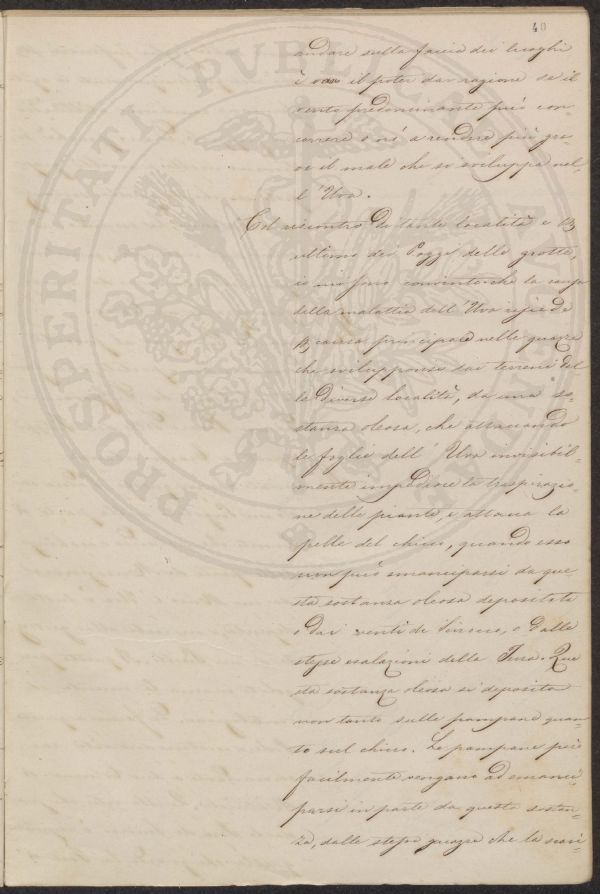 40
andare sulla faccia dei luoghi
è van il poter dar ragione se il
vento predominante può con=
correre o nò a rendere più gra=
ve il male che si sviluppa nel=
l'Uva.
Col riscontro di tante località e
ultimo dei Poggi delle grotte,
io mi sono convinto che la causa
della malattia dell'Uva risiede
causa principale nelle guazze
che sviluppansi sui terreni del=
le diverse località, da una so=
stanza oleosa, che attaccando
le foglie dell'Uva invisibil=
mente impedisce la traspirazio=
ne delle piante, e attacca la
pelle del chicco, quando esso
non può emanciparsi da que=
sta sostanza oleosa depositata
o dai venti di Sirocco, o dalle
stesse esalazioni della Terra. Que=
sta sostanza oleosa si deposita
non tanto sulle pampane quan=
to sul chicco. Le pampane però
facilmente vengano ad emanci=
parsi in parte da questa sostan=
za, dalle stesse guazze che la
PROSPERITATI PUBLICAE AUGENDAE